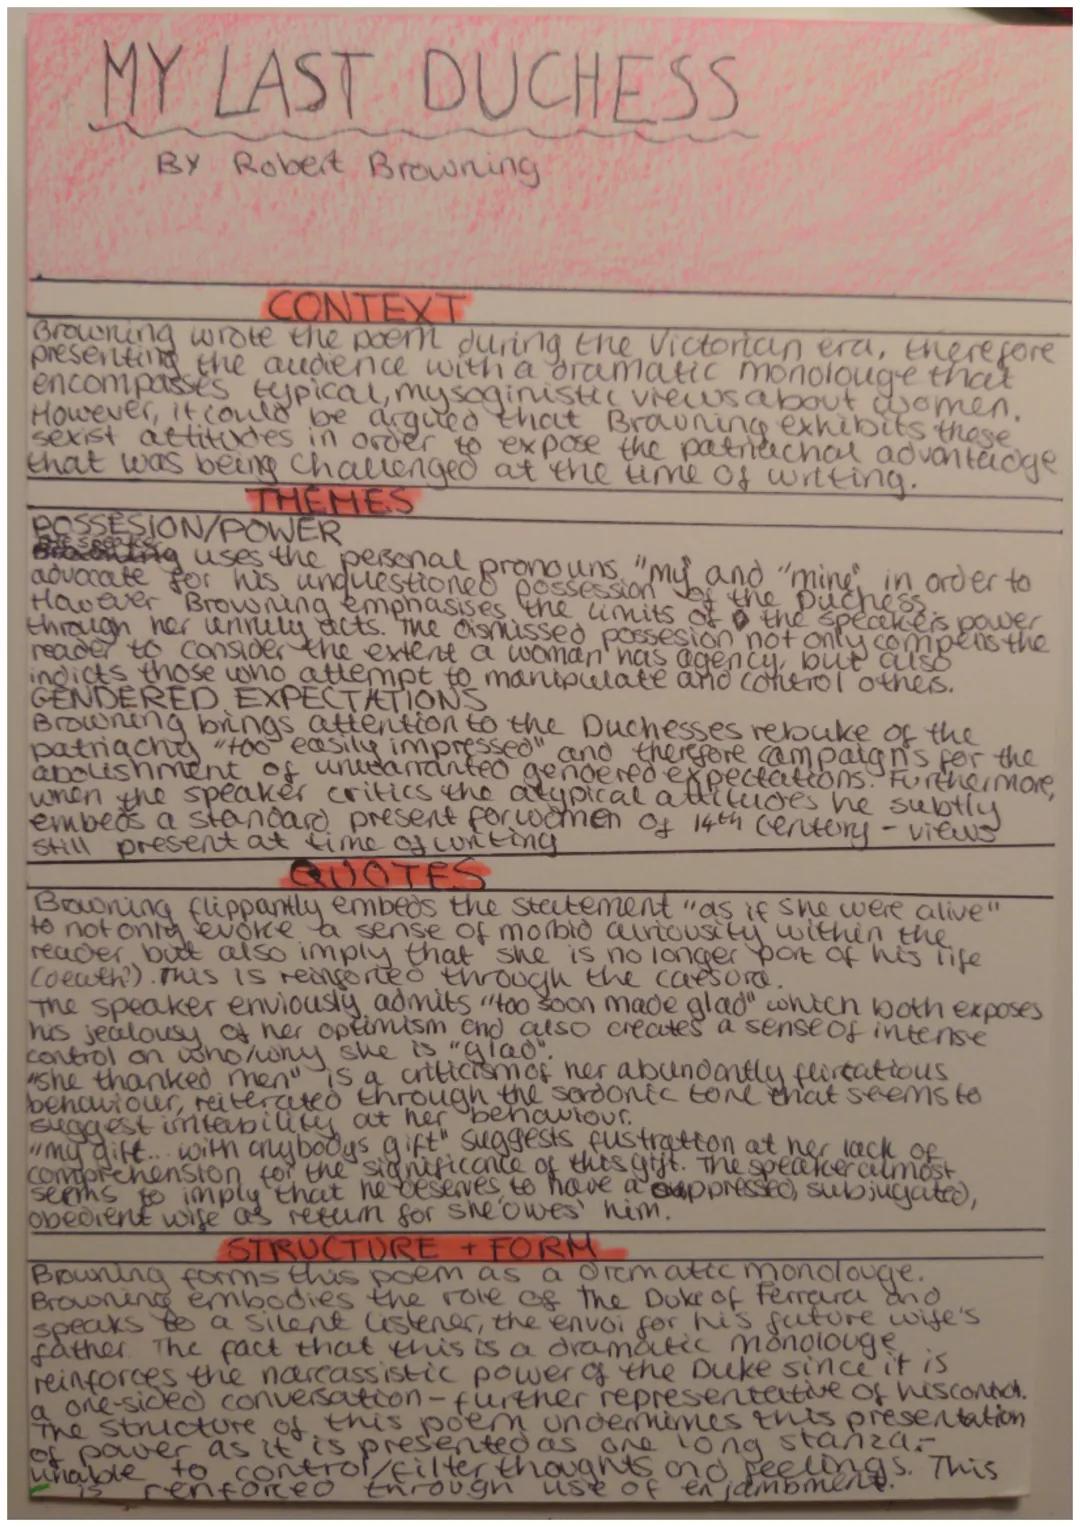 MY LAST DUCHESS
By Robert Browning
CONTEXT
Browning wrote the poem during the Victorian era, therefore
presenting the audience with a dramatic monolouge that
encompasses typical, mysoginistic views about women.
However, it could be argued that Browning exhibits these
sexist attitudes in order to expose the patriachal advantadge
that was being challenged at the time of writing.
THEMES
POSSESION/POWER
The speaker uses the personal pronouns "my" and "mine" in order to
advocate for his unquestioned possession of the Duchess.
However Browning emphasises the limits of the speakers power
through her unruly acts. The dismissed possesion not only compells the
reader to consider the extent a woman has agency, but also
indicts those who attempt to manipulate and control others.
GENDERED EXPECTATIONS
Browning brings attention to the Duchesses rebuke of the
patriachy "too easily impressed" and therefore campaigns for the
abolishment of unwarranted gendered expectations. Furthermore,
when the speaker critics the atypical attitudes he subtly
embeds a standard present for women of 14th century - views
still present at time of writing
QUOTES
Browning flippantly embeds the statement "as if she were alive"
to not only evoke a sense of morbid curiousity within the
reader but also imply that she is no longer part of his life
(death?). This is reinforced through the caesura.
The speaker enviously admits "too soon made glad" which both exposes
his jealousy of her optimism and also creates a sense of intense
control on who/why she is "glad".
"she thanked men" is a criticism of her abundantly flirtatious
behaviour, reiterated through the sardonic tone that seems to
suggest irritability at her behaviour.
"my gift... with anybodys gift" suggests fustration at her lack of
comprehension for the significance of this gift. The speaker almost
seems to imply that he deserves to have a oppressed, subjugated,
obedient wife as return for she 'owes' him.
STRUCTURE + FORM
Browning forms this poem as a dramatic monolouge.
Browning embodies the role of the Duke of Ferrara and
speaks to a silent listener, the envoi for his future wife's
father. The fact that this is a dramatic monolouge
reinforces the narcassistic power of the Duke since it is
a one-sided conversation - further representative of his control.
The structure of this poem undermines this presentation
of power as it is presented as one long stanza -
unable to control/filter thoughts and feelings. This
is renforced through use of enjambment.